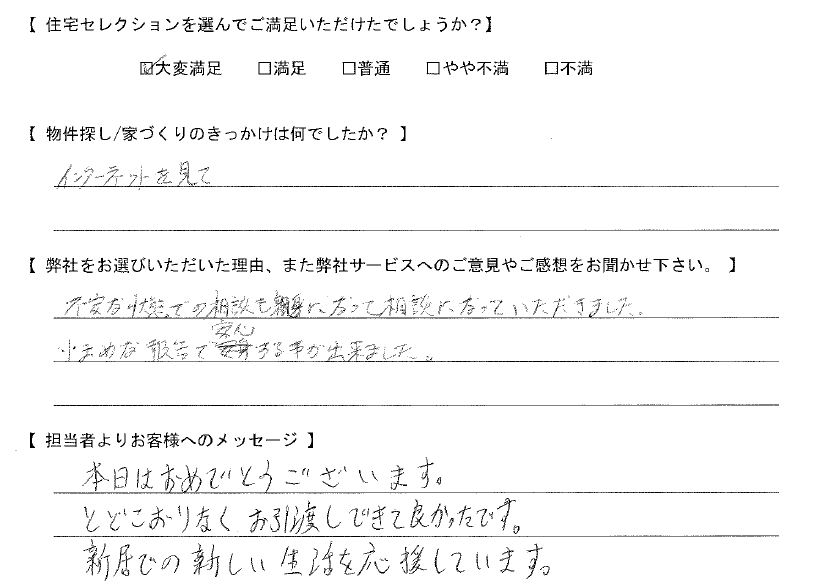 【 住宅セレクションを選んでご満足いただけたでしょうか？】
☑大変満足 □満足 □普通 □やや不満 □不満
【 物件探し/家づくりのきっかけは何でしたか？ 】
インターネットを見て
【 弊社をお選びいただいた理由、また弊社サービスへのご意見やご感想をお聞かせ下さい。 】
不安な状態での相談も親身になって相談になっていただきました。
小まめな報告で安心する事が出来ました。
【 担当者よりお客様へのメッセージ 】
本日はおめでとうございます。
とどこおりなくお引渡しできて良かったです。
新居での新しい生活を応援しています。